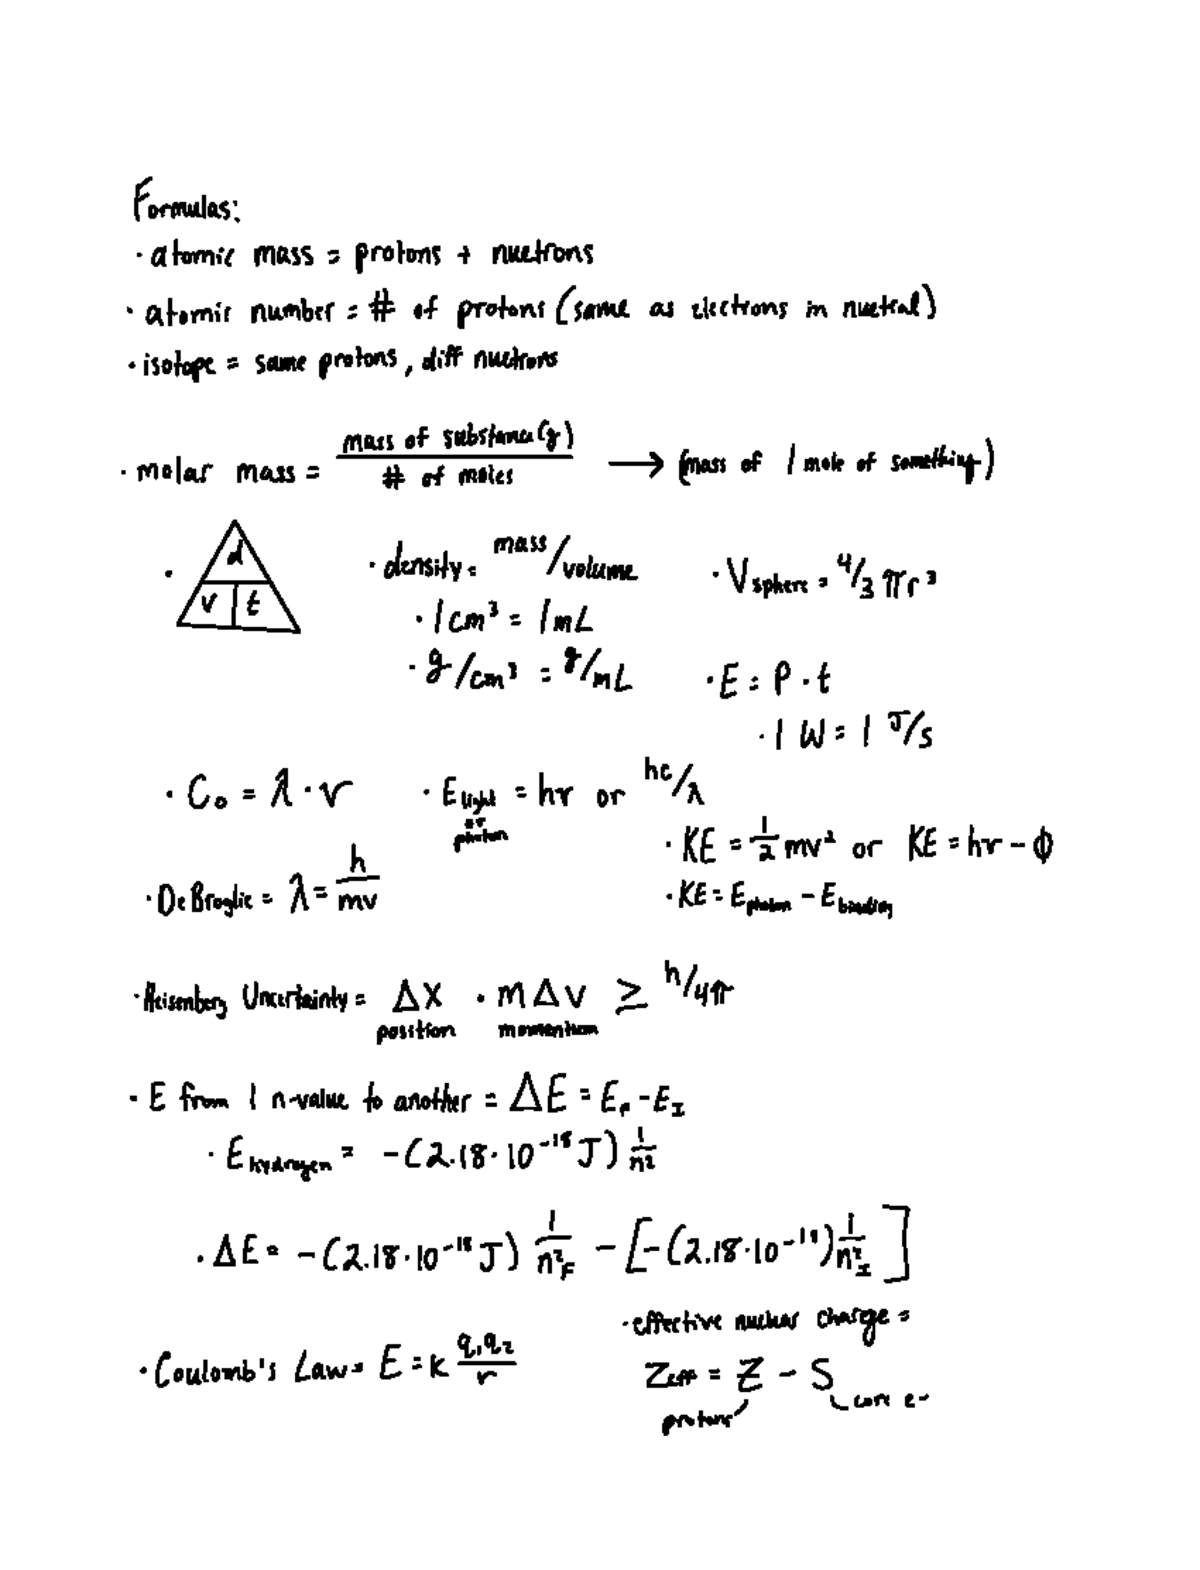 Formulas:
· atomic mass = protons + nuetrons
· atomic number = # of protons (same as electrons in nuetral)
· isotope = same protons, diff nuetrons
· molar mass = mass of substance (g) / # of moles → (mass of 1 mole of something)
· d
v t
· density = mass/volume
· 1 cm³ = 1 mL
· g/cm³ = g/mL
· V sphere = 4/3 πr³
· E = P · t
· 1 W = 1 J/s
· C₀ = λ · ν
· E light or photon = hν or hc/λ
· KE = 1/2 mv² or KE = hν − ϕ
· KE = E photon − E binding
· De Broglie = λ = h/mv
· Heisenberg Uncertainty = Δx · mΔv ≥ h/4π
position momentum
· E from 1 n-value to another = ΔE = E_F − E_I
· E hydrogen = −(2.18·10⁻¹⁸ J) 1/n²
· ΔE = −(2.18·10⁻¹⁸ J) 1/n²_F − [−(2.18·10⁻¹⁸) 1/n²_I]
· Coulomb's Law = E = k q₁q₂/r
· effective nuclear charge =
Zeff = Z − S
protons core e-